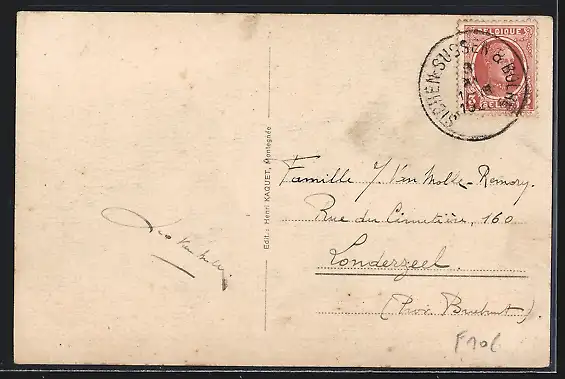 BELGIQUE
SICHEN-SUSSEN & BOLRE
Edit.: Henri KAQUET, Montegnée
Famille J. Van Molle-Remory.
Rue du Cimetière, 160
Londerzeel.
(Prov. Brabant).
F106